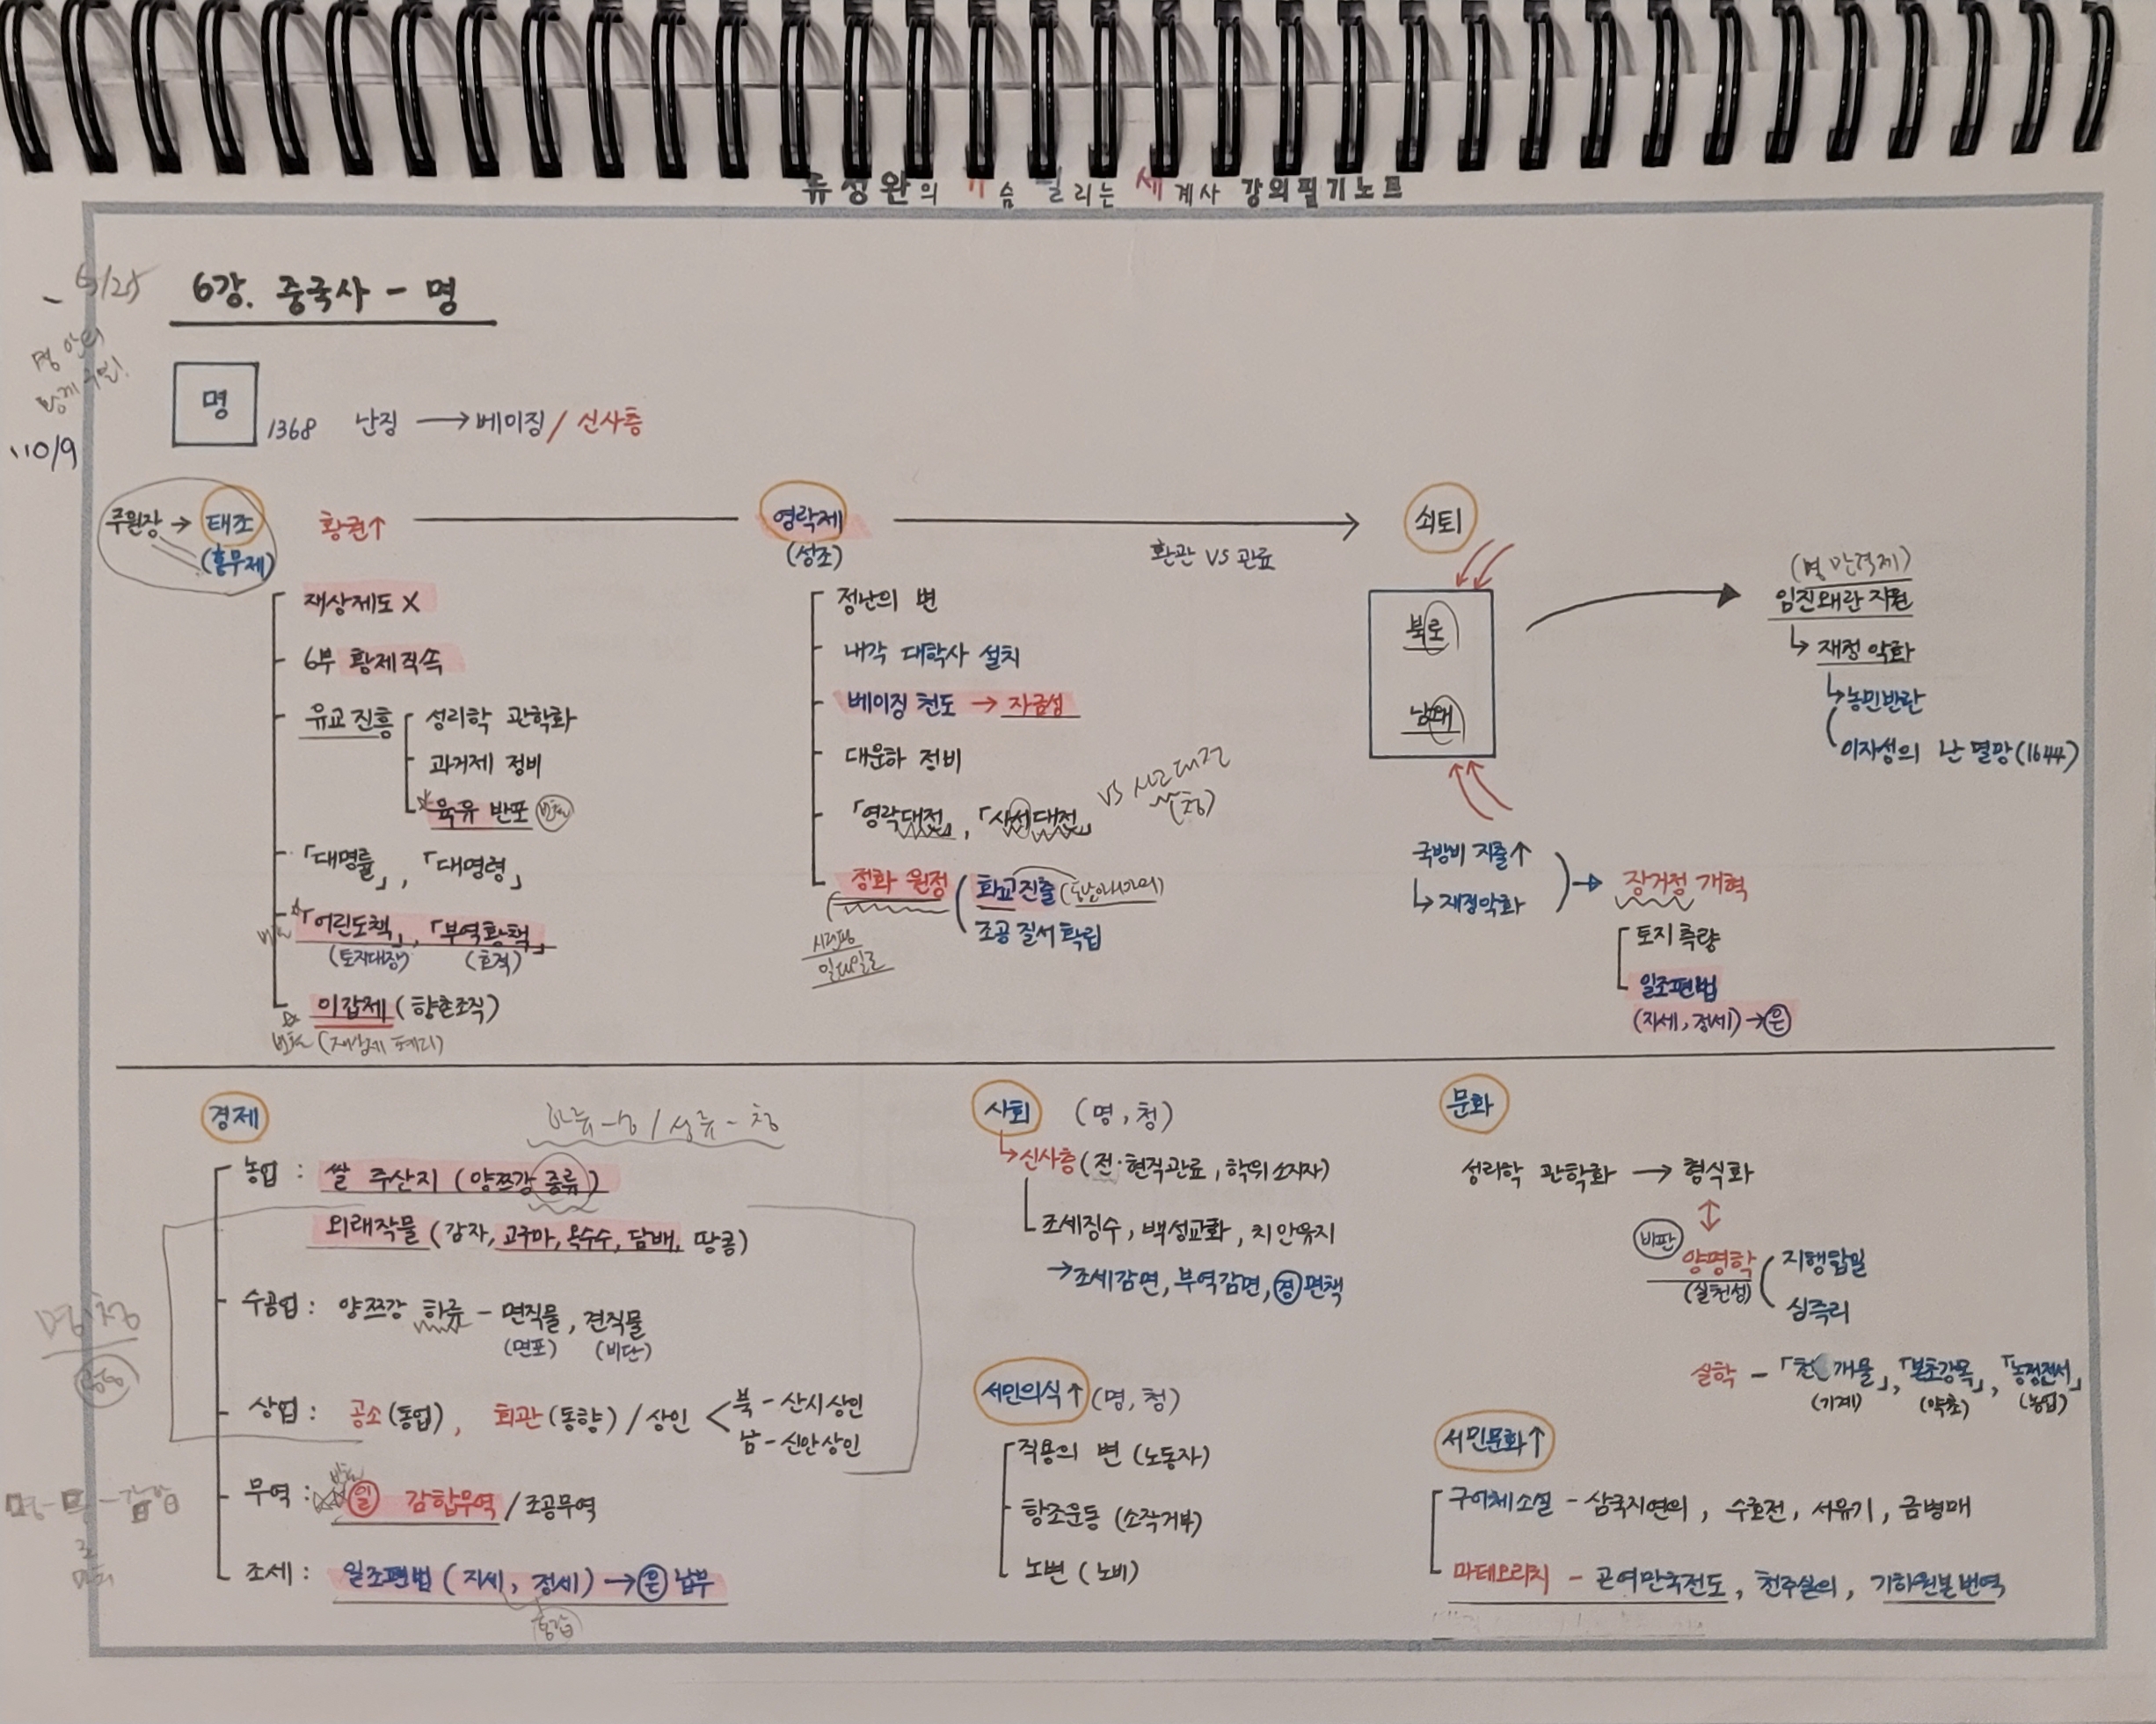 류성완의 가슴 떨리는 세계사 강의필기노트
6/25
6강. 중국사 - 명
명
1368 난징 → 베이징 / 신사층
10/9
주원장 → 태조
(홍무제)
황권↑
재상제도 X
6부 황제직속
유교 진흥
성리학 관학화
과거제 정비
육유 반포
「대명률」, 「대명령」
「어린도책」, 「부역황책」
(토지대장) (호적)
이갑제 (향촌조직)
영락제
(성조)
환관 VS 관료
정난의 변
내각 대학사 설치
베이징 천도 → 자금성
대운하 정비
「영락대전」, 「사서대전」
VS 사고전서
(청)
정화 원정
화교진출 (동남아시아)
조공 질서 확립
시진핑
일대일로
쇠퇴
북로
남왜
(명 만력제)
임진왜란 지원
↳ 재정 악화
↳ 농민반란
이자성의 난 멸망(1644)
국방비 지출↑
↳ 재정악화
→ 장거정 개혁
토지 측량
일조편법
(지세, 정세) → 은
경제
하류-명 / 중류-청
농업 : 쌀 주산지 (양쯔강 중류)
외래작물 (감자, 고구마, 옥수수, 담배, 땅콩)
수공업 : 양쯔강 하류 - 면직물, 견직물
(면포) (비단)
상업 : 공소(동업), 회관(동향) / 상인
북 - 산시상인
남 - 신안상인
무역 : 일 감합무역 / 조공무역
조세 : 일조편법 (지세, 정세) → 은 납부
명청
공통
사회 (명, 청)
↳ 신사층 (전·현직관료, 학위소지자)
조세징수, 백성교화, 치안유지
→ 조세감면, 부역감면, 경 면책
서민의식↑ (명, 청)
직용의 변 (노동자)
항조운동 (소작거부)
노변 (노비)
문화
성리학 관학화 → 형식화
비판
양명학
(실천성)
지행합일
심즉리
실학 - 「천공개물」, 「본초강목」, 「농정전서」
(기계) (약초) (농업)
서민문화↑
구어체소설 - 삼국지연의, 수호전, 서유기, 금병매
마테오리치 - 곤여만국전도, 천주실의, 기하원본 번역